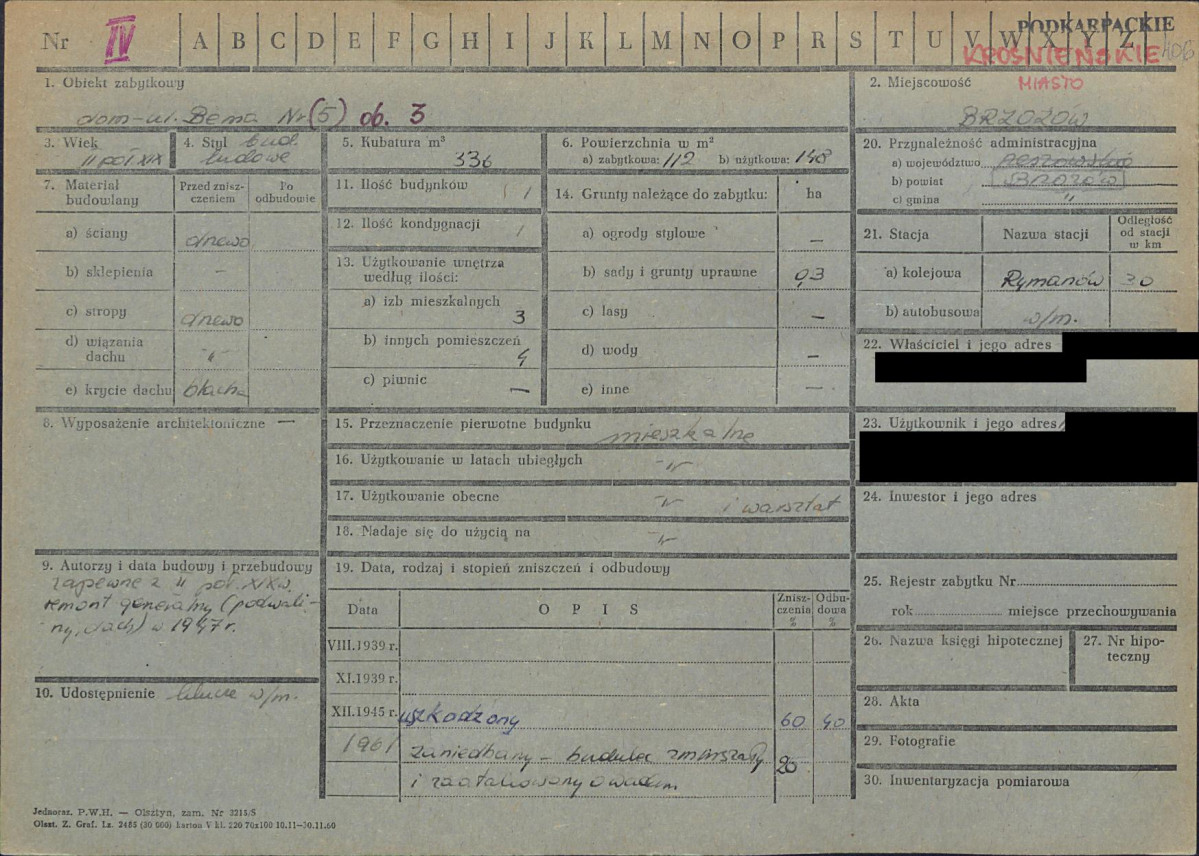 Nr IV A B C D E F G H I J K L M N O P R S T U V W X Y Z
PODKARPACKIE
KROŚNIEŃSKIE 406
MIASTO
1. Obiekt zabytkowy
dom - ul. Bema Nr (5) ob. 3
2. Miejscowość
BRZOZÓW
3. Wiek
II poł XIX
4. Styl bud.
ludowe
5. Kubatura m³
336
6. Powierzchnia w m²
a) zabytkowa: 112 b) użytkowa: 148
20. Przynależność administracyjna
a) województwo rzeszowskie
b) powiat BROZÓW
c) gmina "
7. Materiał budowlany
Przed zniszczeniem
Po odbudowie
a) ściany drewo
b) sklepienia —
c) stropy drewo
d) wiązania dachu -"-
e) krycie dachu blacha
11. Ilość budynków 1
12. Ilość kondygnacji 1
13. Użytkowanie wnętrza
według ilości:
a) izb mieszkalnych 3
b) innych pomieszczeń 4
c) piwnic —
14. Grunty należące do zabytku: ha
a) ogrody stylowe —
b) sady i grunty uprawne 0,3
c) lasy —
d) wody —
e) inne —
21. Stacja Nazwa stacji Odległość od stacji w km
a) kolejowa Rymanów 30
b) autobusowa w/m.
22. Właściciel i jego adres
23. Użytkownik i jego adres
24. Inwestor i jego adres
8. Wyposażenie architektoniczne —
15. Przeznaczenie pierwotne budynku mieszkalne
16. Użytkowanie w latach ubiegłych -"-
17. Użytkowanie obecne -"- i warsztat
18. Nadaje się do użycia na -"-
9. Autorzy i data budowy i przebudowy
zapewne z II poł. XIX w.
remont generalny (podwali-
ny, dach) w 1947 r.
10. Udostępnienie klucze w/m.
19. Data, rodzaj i stopień zniszczeń i odbudowy
Data OPIS Zniszczenia % Odbudowa %
VIII.1939 r.
XI.1939 r.
XII.1945 r. uszkodzony 60 40
1961 zaniedbany - budulec zmurszały 20
i zaatakowany owadem
25. Rejestr zabytku Nr
rok miejsce przechowywania
26. Nazwa księgi hipotecznej
27. Nr hipoteczny
28. Akta
29. Fotografie
30. Inwentaryzacja pomiarowa
Jednoraz. P.W.H. — Olsztyn, zam. Nr 3215/S
Olszt. Z. Graf. Lz. 2485 (30 000) karton V kl. 220 70x100 10.11—30.11.60